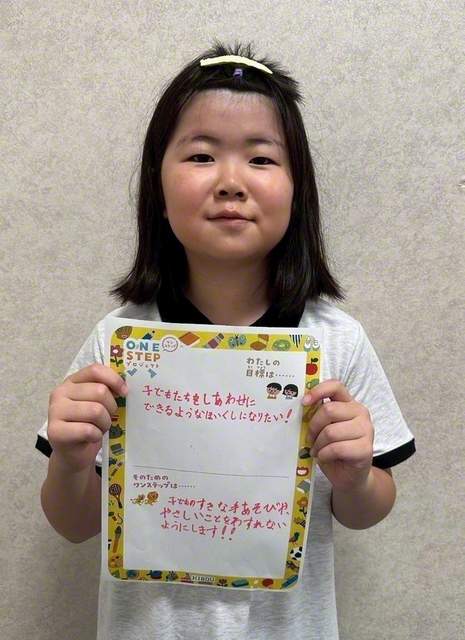 ONE
STEP
プロジェクト
わたしの
目標は……
子どもたちをしあわせに
できるようなほいくしになりたい!
そのための
ワンステップは……
子どものすきな手あそびや、
やさしいことをわすれない
ようにします!!
KIBOU